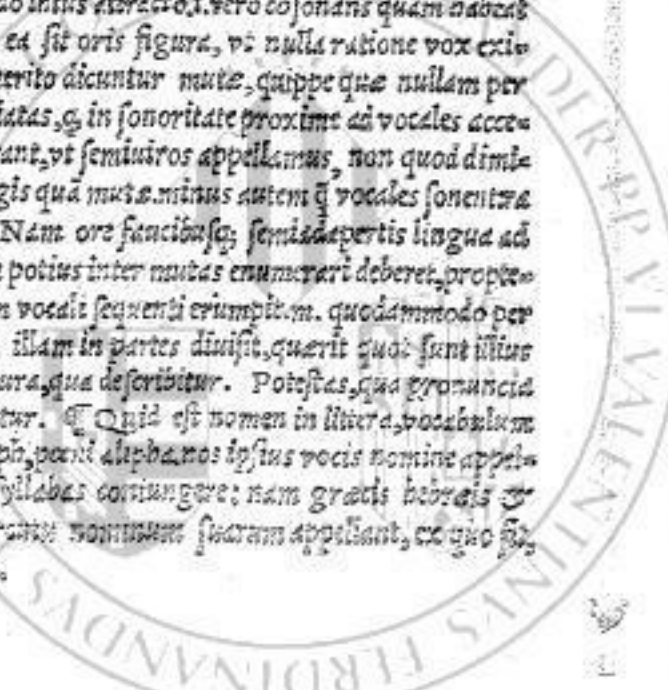 intus attracto.i.vero cōsonans quam habeat
ea sit oris figura, vt nulla ratione vox exi-
merito dicuntur mutæ, quippe quæ nullam per
latas, q; in sonoritate proxime ad vocales acce-
ant, vt semiuiros appellamus, non quod dimi-
gis quā mutæ.minus autem q̄ vocales sonent.ra
Nam ore faucibusq; semiadapertis lingua ad
potius inter mutas enumerari deberet, propte-
vocali sequenti erumpit.m. quodammodo per
illam in partes diuisit, quærit quot sunt illius
ura, qua describitur. Potestas, qua pronuncia
tur. ¶ Quid est nomen in littera, vocabulum
ph, pœni alepha.nos ipsius vocis nomine appel-
syllabas coniungere: nam græcis hebræis &
nominum suarum appellant, ex quo fit,
DER PP VI VALENTINVS FERDINANDVS